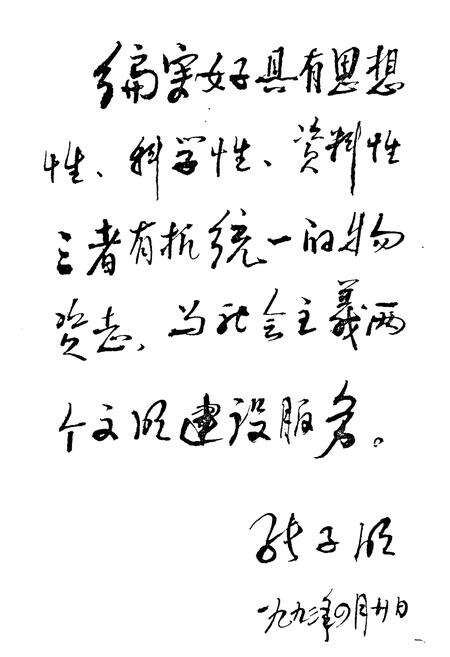 编写好具有思想
性、科学性、资料性
三者有机统一的物
资志,为社会主义两
个文明建设服务。
张子明
一九九三年四月廿日